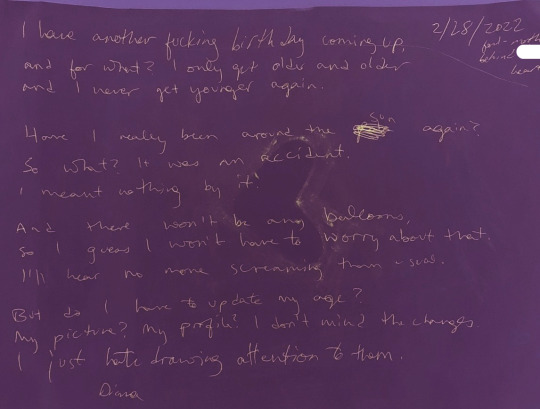 2/28/2022
behind
I have another fucking birthday coming up,
and for what? I only get older and older
and I never get younger again.
Have I really been around the sun again?
So what? It was an accident.
I meant nothing by it!
And there won't be any balloons,
so I guess I won't have to worry about that.
I'll hear no more screaming than usual.
But do I have to update my age?
My picture? My profile? I don't mind the changes
I just hate drawing attention to them.